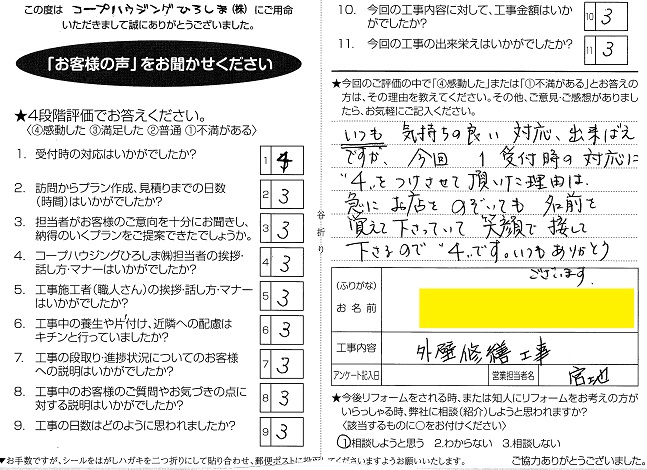 この度は コープハウジングひろしま(株) にご用命
いただきまして誠にありがとうございました。
「お客様の声」をお聞かせください
★4段階評価でお答えください。
〈④感動した ③満足した ②普通 ①不満がある〉
1. 受付時の対応はいかがでしたか? 1 4
2. 訪問からプラン作成、見積りまでの日数
(時間)はいかがでしたか? 2 3
3. 担当者がお客様のご意向を十分にお聞きし、
納得のいくプランをご提案できたでしょうか。 3 3
4. コープハウジングひろしま㈱担当者の挨拶・
話し方・マナーはいかがでしたか? 4 3
5. 工事施工者(職人さん)の挨拶・話し方・マナー
はいかがでしたか? 5 3
6. 工事中の養生や片付け、近隣への配慮は
キチンと行っていましたか? 6 3
7. 工事の段取り・進捗状況についてのお客様
への説明はいかがでしたか? 7 3
8. 工事中のお客様のご質問やお気づきの点に
対する説明はいかがでしたか? 8 3
9. 工事の日数はどのように思われましたか? 9 3
▼お手数ですが、シールをはがしハガキを二つ折りにして貼り合わせ、郵便ポストに投函してくださいますようお願いいたします。
谷折り
10. 今回の工事内容に対して、工事金額はいか
がでしたか? 10 3
11. 今回の工事の出来栄えはいかがでしたか? 11 3
★今回のご評価の中で「④感動した」または「①不満がある」とお答えの
方は、その理由を教えてください。その他、ご意見・ご感想がありまし
たら、お気軽にご記入ください。
いつも 気持ちの良い 対応、出来ばえ
ですが、今回 1 受付時の対応に
"4"をつけさせて頂いた理由は、
急に お店を のぞいても 名前を
覚えて下さっていて 笑顔で 接して
下さるので"4"です。いつもありがとう
ございます。
(ふりがな)
お名前
工事内容 外壁修繕工事
アンケート記入日 営業担当者名 宮地
★今後リフォームをされる時、または知人にリフォームをお考えの方が
いらっしゃる時、弊社に相談(紹介)しようと思われますか?
〈該当するものに○をお付けください〉
①相談しようと思う 2.わからない 3.相談しない
ご協力ありがとうございました。